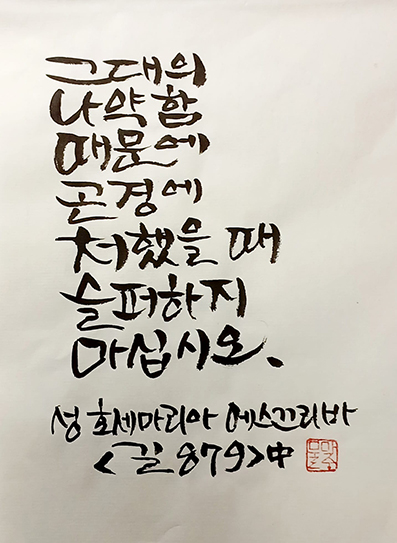 그대의
나약함
때문에
곤경에
처했을 때
슬퍼하지
마십시오.
성 호세마리아 에스끄리바
<길 879>中